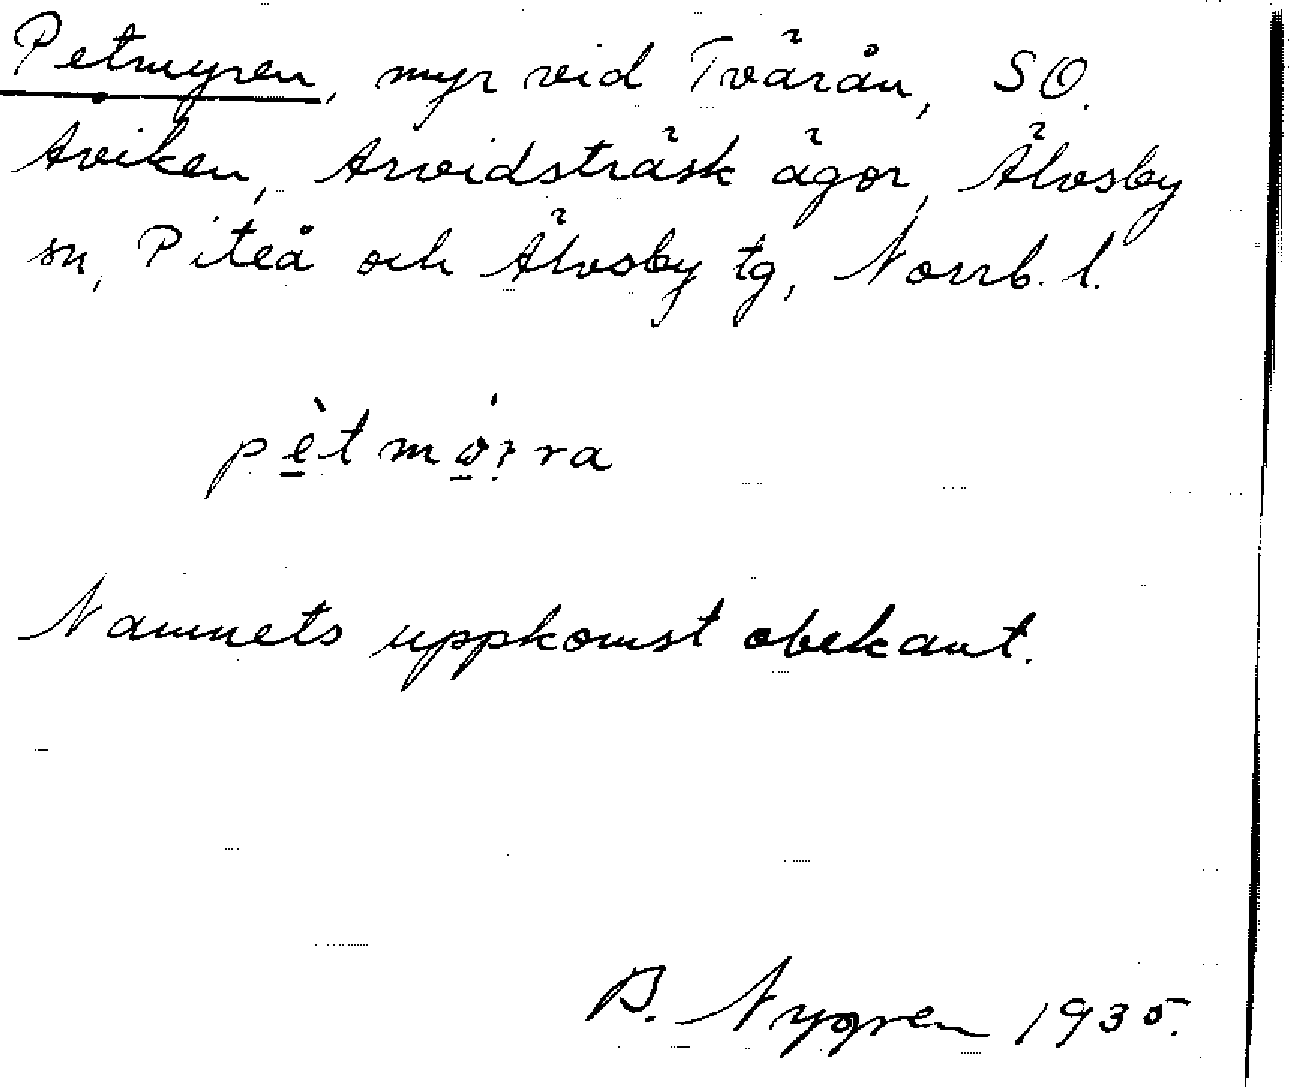 Petmyren, myr vid Tvärån, SO.
Aviken, Arvidsträsk ägor, Älvsby
sn, Piteå och Älvsby tg, Norrb. l.
pètmø̀rra
Namnets uppkomst obekant.
B. Nygren 1935.